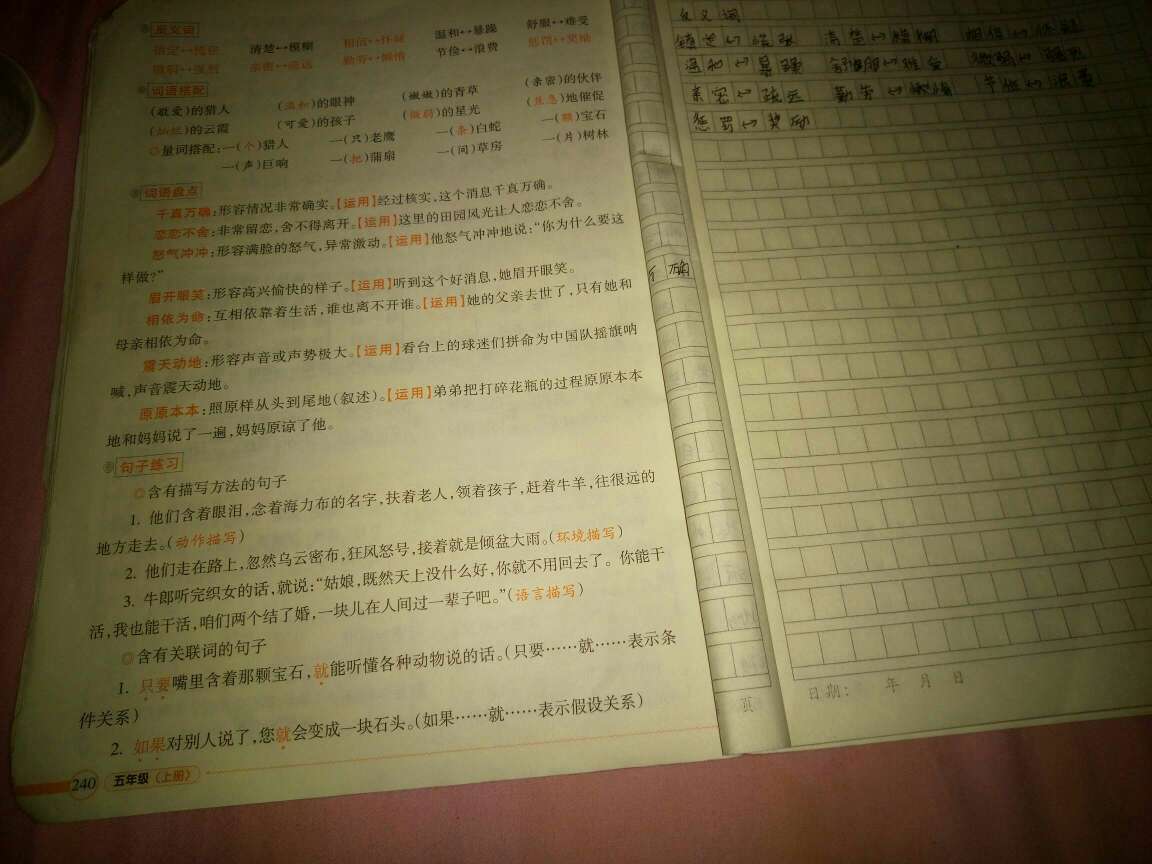 反义词
镇定↔慌张 清楚↔模糊 相信↔怀疑 温和↔暴躁 舒服↔难受
微弱↔强烈 亲密↔疏远 勤劳↔懒惰 节俭↔浪费 惩罚↔奖励
词语搭配
(敬爱)的猎人 (温和)的眼神 (嫩嫩)的青草 (亲密)的伙伴
(灿烂)的云霞 (可爱)的孩子 (微弱)的星光 (焦急)地催促
◎量词搭配:一(个)猎人 一(只)老鹰 一(条)白蛇 一(颗)宝石
一(声)巨响 一(把)蒲扇 一(间)草房 一(片)树林
词语盘点
千真万确:形容情况非常确实。【运用】经过核实,这个消息千真万确。
恋恋不舍:非常留恋,舍不得离开。【运用】这里的田园风光让人恋恋不舍。
怒气冲冲:形容满脸的怒气,异常激动。【运用】他怒气冲冲地说:“你为什么要这
样做?”
眉开眼笑:形容高兴愉快的样子。【运用】听到这个好消息,她眉开眼笑。
相依为命:互相依靠着生活,谁也离不开谁。【运用】她的父亲去世了,只有她和
母亲相依为命。
震天动地:形容声音或声势极大。【运用】看台上的球迷们拼命为中国队摇旗呐
喊,声音震天动地。
原原本本:照原样从头到尾地(叙述)。【运用】弟弟把打碎花瓶的过程原原本本
地和妈妈说了一遍,妈妈原谅了他。
句子练习
◎含有描写方法的句子
1. 他们含着眼泪,念着海力布的名字,扶着老人,领着孩子,赶着牛羊,往很远的
地方走去。(动作描写)
2. 他们走在路上,忽然乌云密布,狂风怒号,接着就是倾盆大雨。(环境描写)
3. 牛郎听完织女的话,就说:“姑娘,既然天上没什么好,你就不用回去了。你能干
活,我也能干活,咱们两个结了婚,一块儿在人间过一辈子吧。”(语言描写)
◎含有关联词的句子
1. 只要嘴里含着那颗宝石,就能听懂各种动物说的话。(只要……就……表示条
件关系)
2. 如果对别人说了,您就会变成一块石头。(如果……就……表示假设关系)
240 五年级(上册)
万确
页
反义词
镇定↔慌张 清楚↔模糊 相信↔怀疑
温和↔暴躁 舒服↔难受 微弱↔强烈
亲密↔疏远 勤劳↔懒惰 节俭↔浪费
惩罚↔奖励
日期: 年 月 日